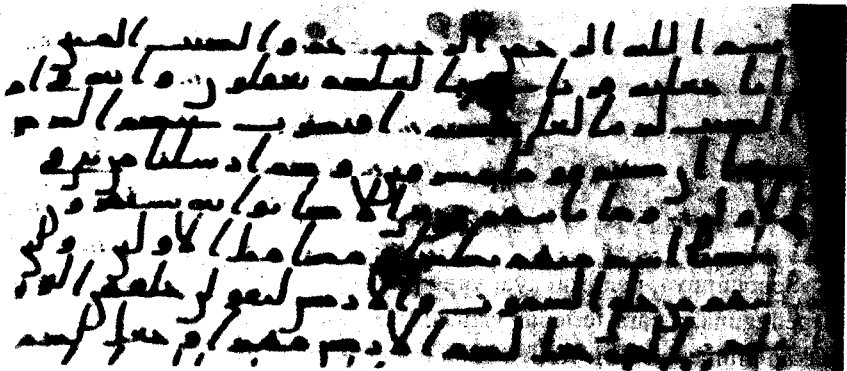 بسم الله الرحمن الرحيم حم والكتب المبين
انا جعلنه قرنا عربيا لعلكم تعقلون وانه في ام
الكتب لدينا لعلي حكيم افنضرب عنكم الذكر
صفحا ان كنتم قوما مسرفين وكم ارسلنا من نبي في
الاولين وما ياتيهم من نبي الا كانوا به يستهزو
ن فاهلكنا اشد منهم بطشا ومضى مثل الاولين ولئن
سالتهم من خلق السموت والارض ليقولن خلقهن العز
يز العليم الذي جعل لكم الارض مهدا وجعل لكم